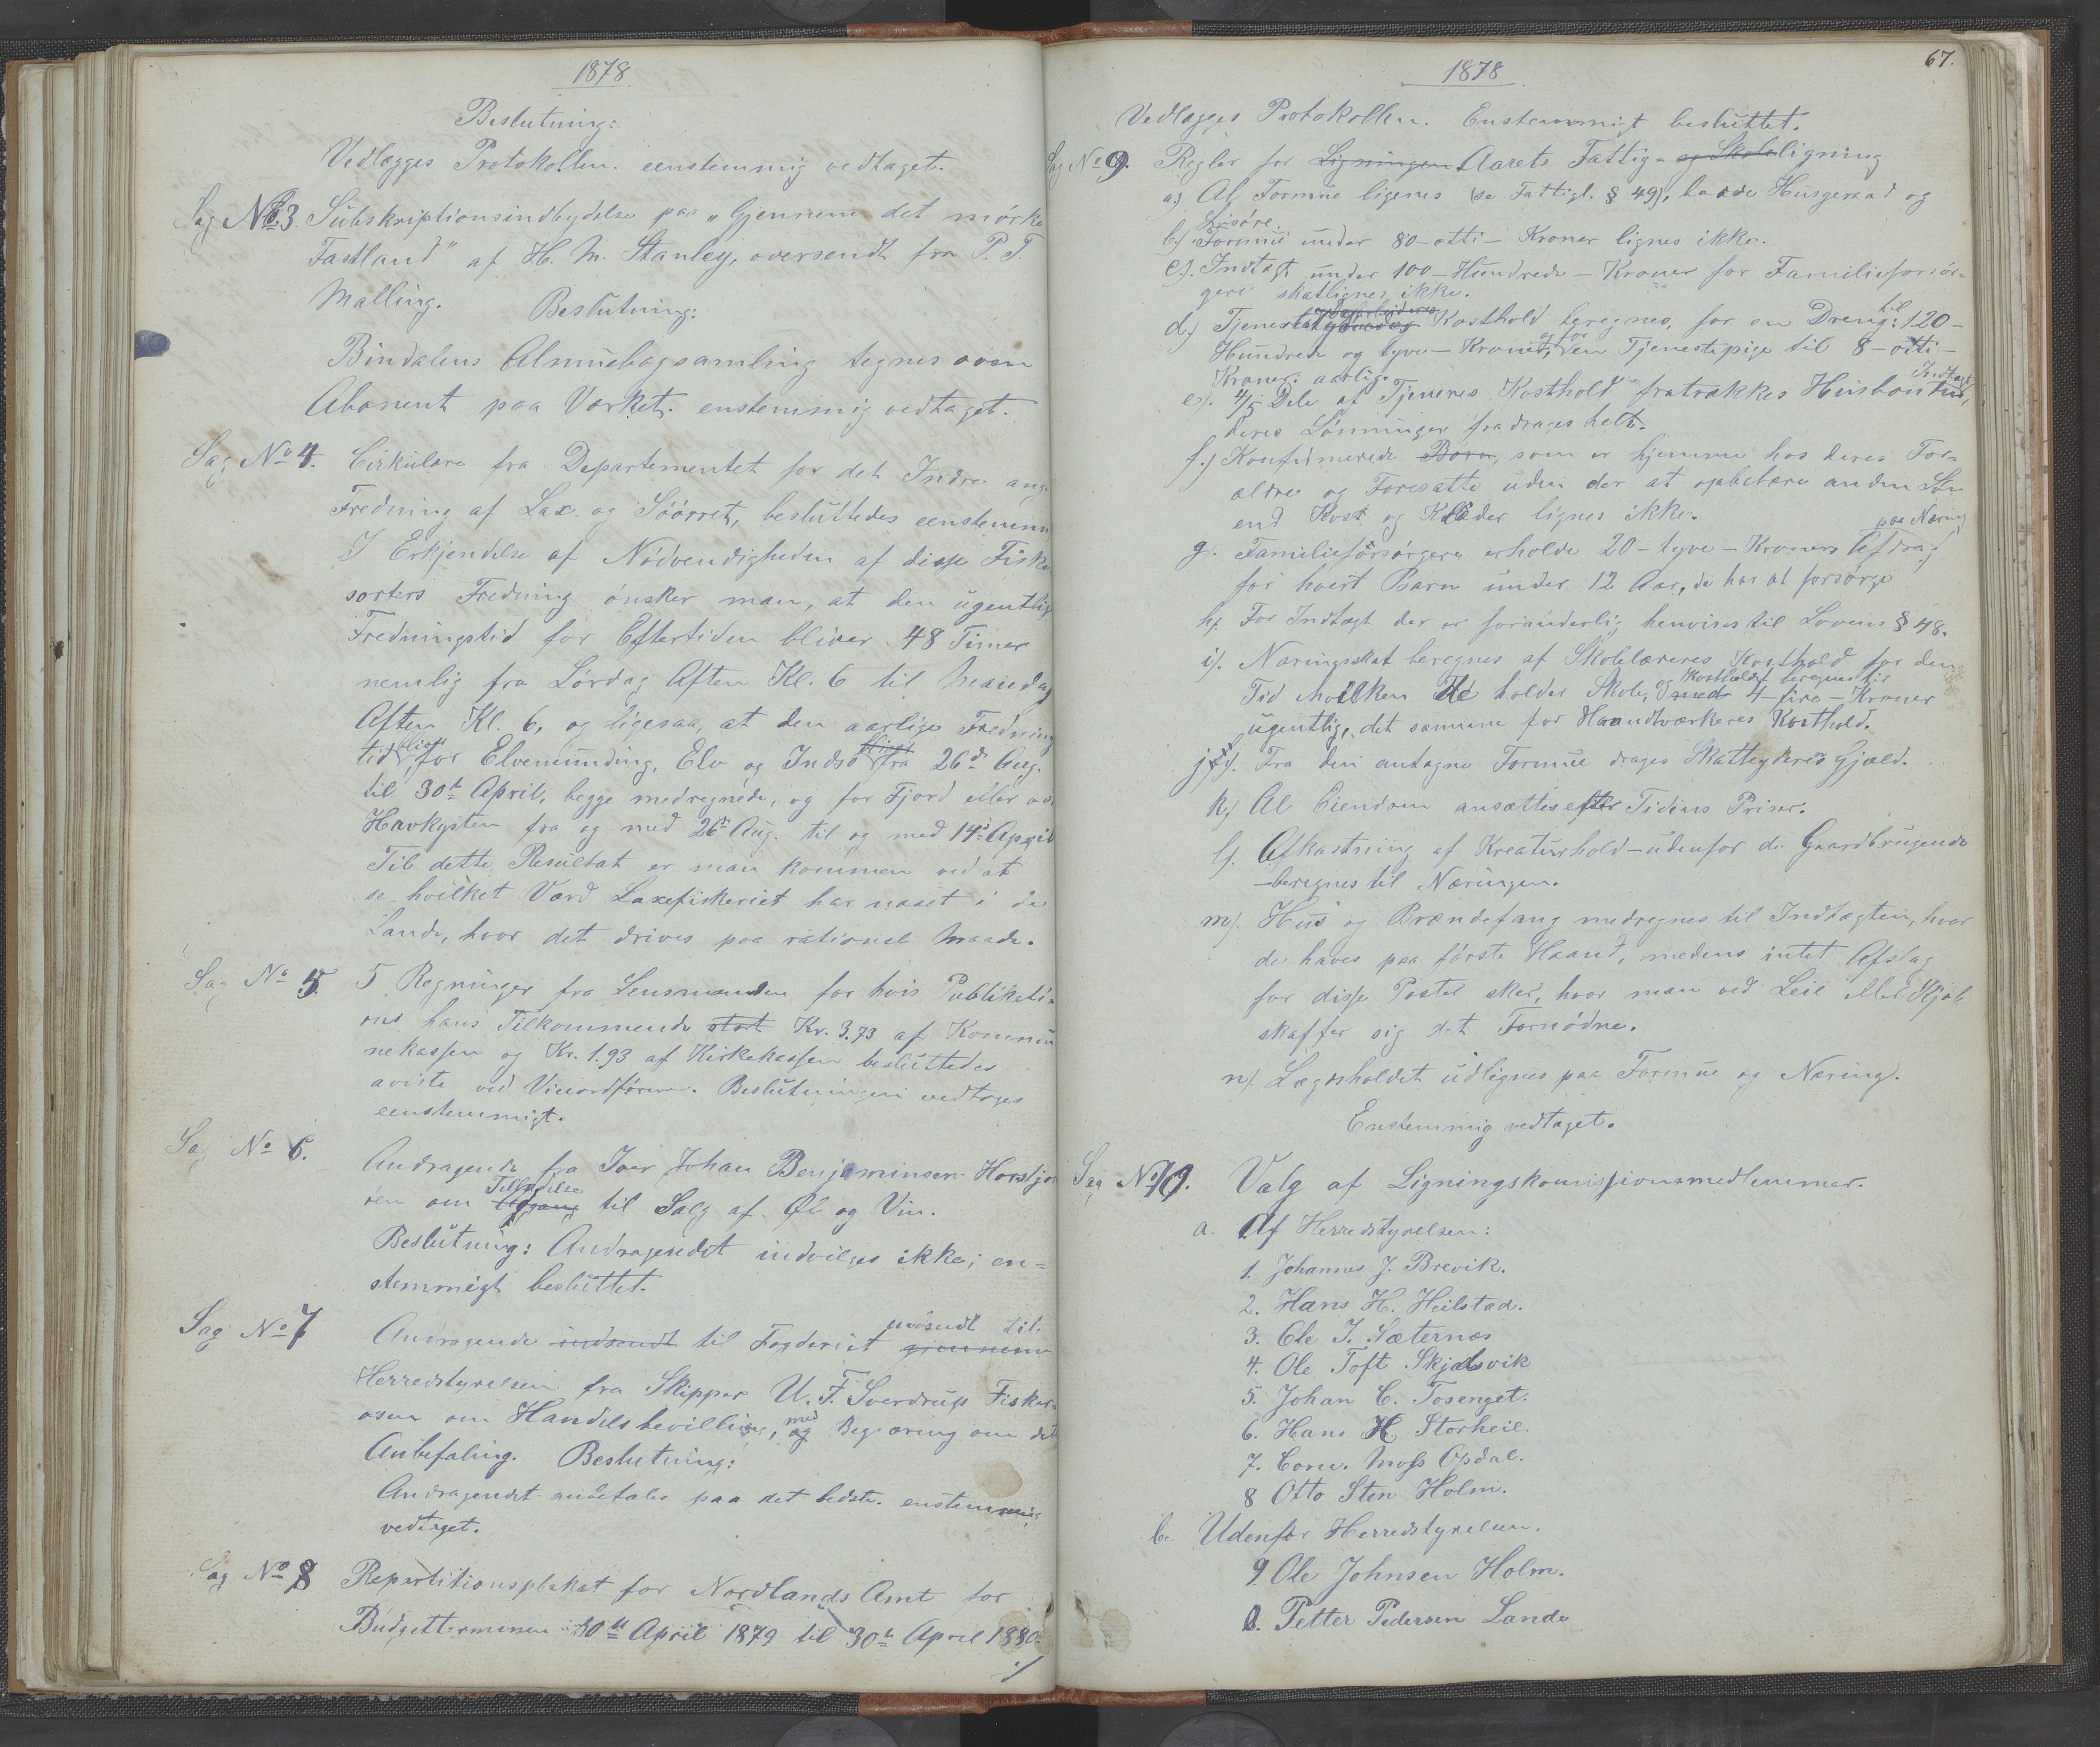 1878
Beslutning:
Vedlægges Protokollen. eenstemmig vedtaget.
Sag No 3. Subskriptionsindbydelse paa „Gjennem det mörke
Fastland" af H. M. Stanley, oversendt fra P. T.
Malling. Beslutning:
Bindalens Almuebogsamling tegnes som
Abonent paa Værket. enstemmig vedtaget.
Sag No 4. Cirkulære fra Departementet for det Indre ang.
Fredning af Lax og Söörret, besluttedes eenstemm
I Erkjendelse af Nödvendigheden af disse Fiske
sorters Fredning önsker man, at den ugentlig
Fredningstid for Eftertiden bliver 48 Timer
nemlig fra Lördag Aften Kl. 6 til Mandag
Aften Kl. 6, og ligesaa, at den aarlige Fredning
tid bliver for Elvemunding, Elv og Indsö bliver fra 26de Aug.
til 30te April, begge medregnede, og for Fjord eller
Havkysten fra og med 26de Aug. til og med 14de April
Til dette Resultat er man kommen ved at
se hvilket Værd Laxefiskeriet har naaet i de
Lande, hvor det drives paa rationel Maade.
Sag No 5. 5 Regninger fra Lensmanden for hvis Publikati-
ons hans Tilkommende stort Kr. 3.73 af Kommu
nekassen og Kr. 1.93 af Kirkekassen besluttedes
aviste ved Viceordförer. Beslutningen vedtoges
eenstemmigt.
Sag No 6. Andragende fra Iver Johan Benjaminsen Horsfjor
den om Tilladelse til Salg af Øl og Vin.
Beslutning: Andragendet indvilges ikke; en=
stemmigt besluttet.
Sag No 7 Andragende indsendt til Fogderiet gjennem udsendt til
Herredstyrelsen fra Skipper U. F. Sverdrup Fisker-
osen om Handelsbevilling, og med Begjæring om det
Anbefaling. Beslutning:
Andragendet anbefales paa det bedste. enstemmig
vedtaget.
Sag No 8 Repartitionsplakat for Nordlands Amt for
Budgetterminen 30te April 1879 til 30te April 1880.
./.
67.
1878
Vedlægges Protokollen. Enstemmigt besluttet.
Sag No 9. Regler for Ligningen Aarets Fattig- og Skoleligning
a) Al Formue lignes (se Fattigl. § 49), baade Husgeraad og
Lösöre.
b) Formue under 80-otti- Kroner lignes ikke.
c). Indtægt under 100-Hundrede-Kroner for Familieforsör-
gere skatlignes ikke.
d.) Tjenestetyendes Kosthold beregnes, for en Dreng: til 120-
Hundrede og tyve- Kroner, og for en Tjenestepige til 8-otti-
Kroner: aarlig.
e). 4/5 Dele af Tjeneres Kosthold fratrækkes Husbond Indtægt,
deres Lönninger fradrages helt.
f.) Konfirmerede Börn, som er hjemme hos deres For-
ældre og Foresatte uden der at opbebære anden Lön
end Kost og Klæder lignes ikke.
g). Familieforsörgere erholde 20-tyve-Kroners Afdrag paa Næring
for hvert Barn under 12 Aar, de har at forsörge
h). For Indtægt der er foranderlig henvises til Lovens § 48.
i). Næringsskat beregnes af Skolelæreres Kosthold for den
Tid hvilken de holder Skole, og Kostholdet beregnes til med 4-fire-Kroner
ugentlig, det samme for Haandværkeres Kosthold.
j). Fra den antagne Formue drages Skatteyderes Gjæld.
k) Al Eiendom ansættes efter Tidens Priser.
l). Afkastning af Kreaturhold-udenfor de Gaardbrugende
-beregnes til Næringen.
m). Hus og Brændefang medregnes til Indtægten, hvor
de haves paa förste Haand, medens intet Afslag
for disse Poster sker, hvor man ved Leie eller Kjöb
skaffer sig det Fornödne.
n). Lægdsholdet udlignes paa Formue og Næring.
Enstemmig vedtaget.
Sag No 10. Valg af Ligningskomissionsmedlemmer.
a. Af Herredstyrelsen:
1. Johannes J. Brevik.
2. Hans H. Heilstad.
3. Ole I. Sæternes
4. Ole Toft Skjelsvik
5. Johan C. Tosenget.
6. Hans H. Storheil.
7. Corn. Moss Opdal.
8 Otto Sten Holm.
b. Udenfor Herredstyrelsen.
9. Ole Johnsen Holm.
10. Petter Pedersen Lande